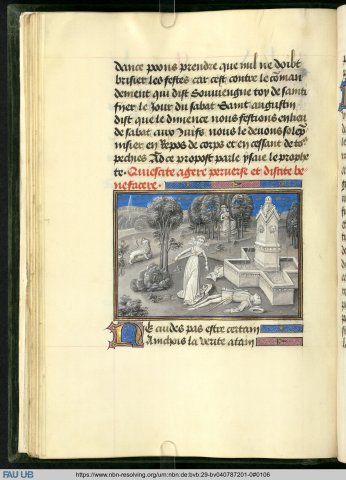 dance poons prendre que nul ne doibt
brisier les festes car cest contre le coman
dement qui dist Souviengne toy de sainti
fuer le Jour du sabat Saint augustin
dist que le dimence nous festions en lieu
de sabat aux Juifs nous le devons solep
nisier en Repos de corps et en cessant de to9
pechies Ad ce propost parle ysaye le prophe
te. Quiescite agere perverse et discite be
nefacere.
Ne cuides pas estre certain
Ainchois la verite atain
FAU UB
https://www.nbn-resolving.org/urn:nbn:de:bvb:29-bv040787201-0#0106